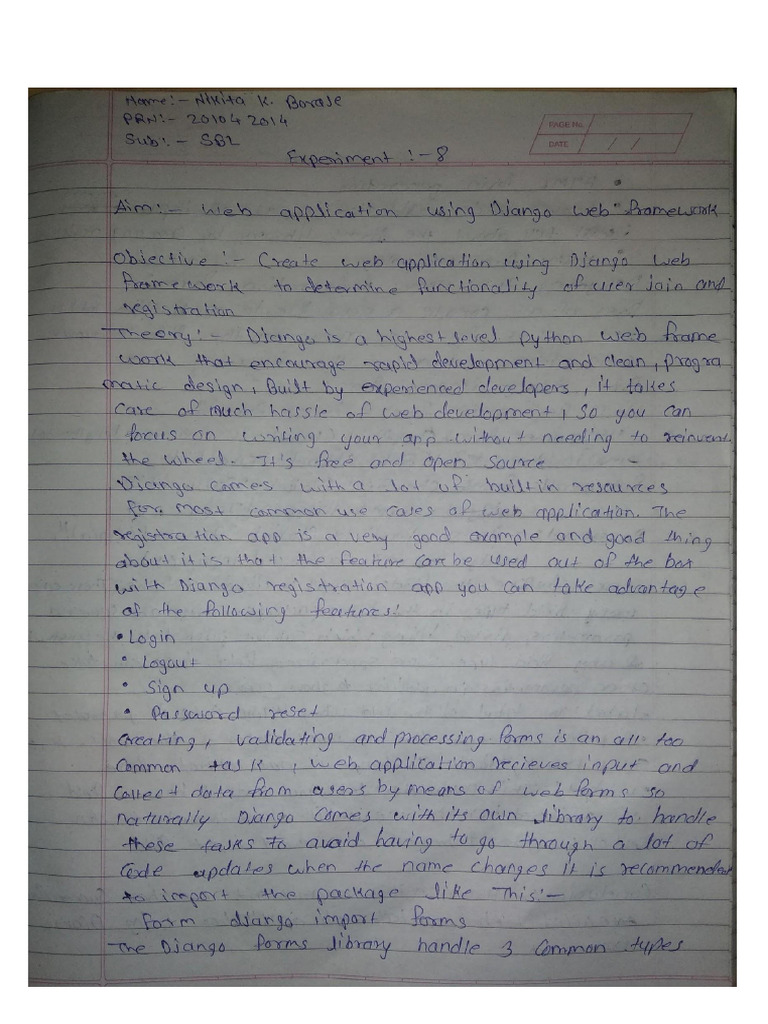 Name:- Nikita K. Borase
PRN:- 201042014
Sub:- SBL
PAGE No.
DATE / /
Experiment :-8
Aim:- web application using Django web framework
Objective :- Create web application using Django web
framework to determine functionality of user join and
registration
Theory:- Django is a highest level python web frame
work that encourage rapid development and clean, progra
matic design, Built by experienced developers, it takes
care of much hassle of web development, so you can
focus on writing your app without needing to reinvent
the wheel. It's free and open source
Django comes with a lot of builtin resources
for most common use cases of web application. The
registration app is a very good example and good thing
about it is that the feature can be used out of the box
with Django registration app you can take advantage
of the following features:
• Login
• Logout
• Sign up
• Password reset
Creating, validating and processing forms is an all too
common task, web application recieves input and
collect data from users by means of web forms so
naturally Django comes with its own library to handle
these tasks to avoid having to go through a lot of
code updates when the name changes it is recommended
to import the package like This:-
form django import forms
The Django forms library handle 3 common types